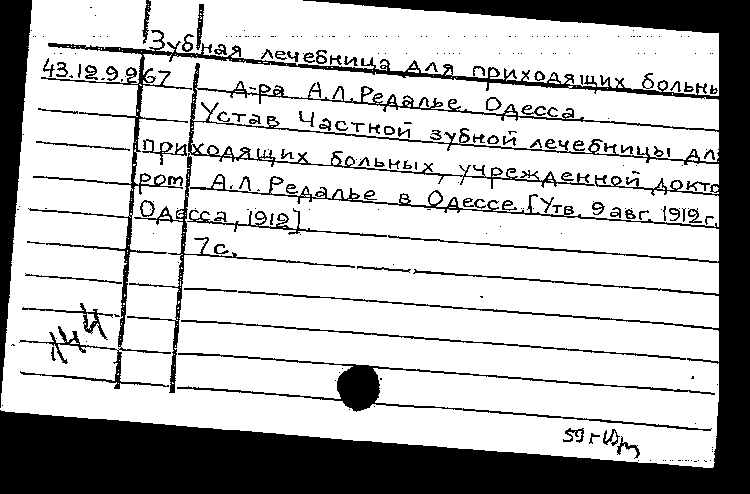 Зубная лечебница для приходящих больны
43.12.9.267 д-ра А.Л.Редалье. Одесса.
Устав Частной зубной лечебницы для
приходящих больных, учрежденной докто
ром А.Л.Редалье в Одессе. [Утв. 9 авг. 1912 г.
Одесса, 1912].
7с.
144
59 г